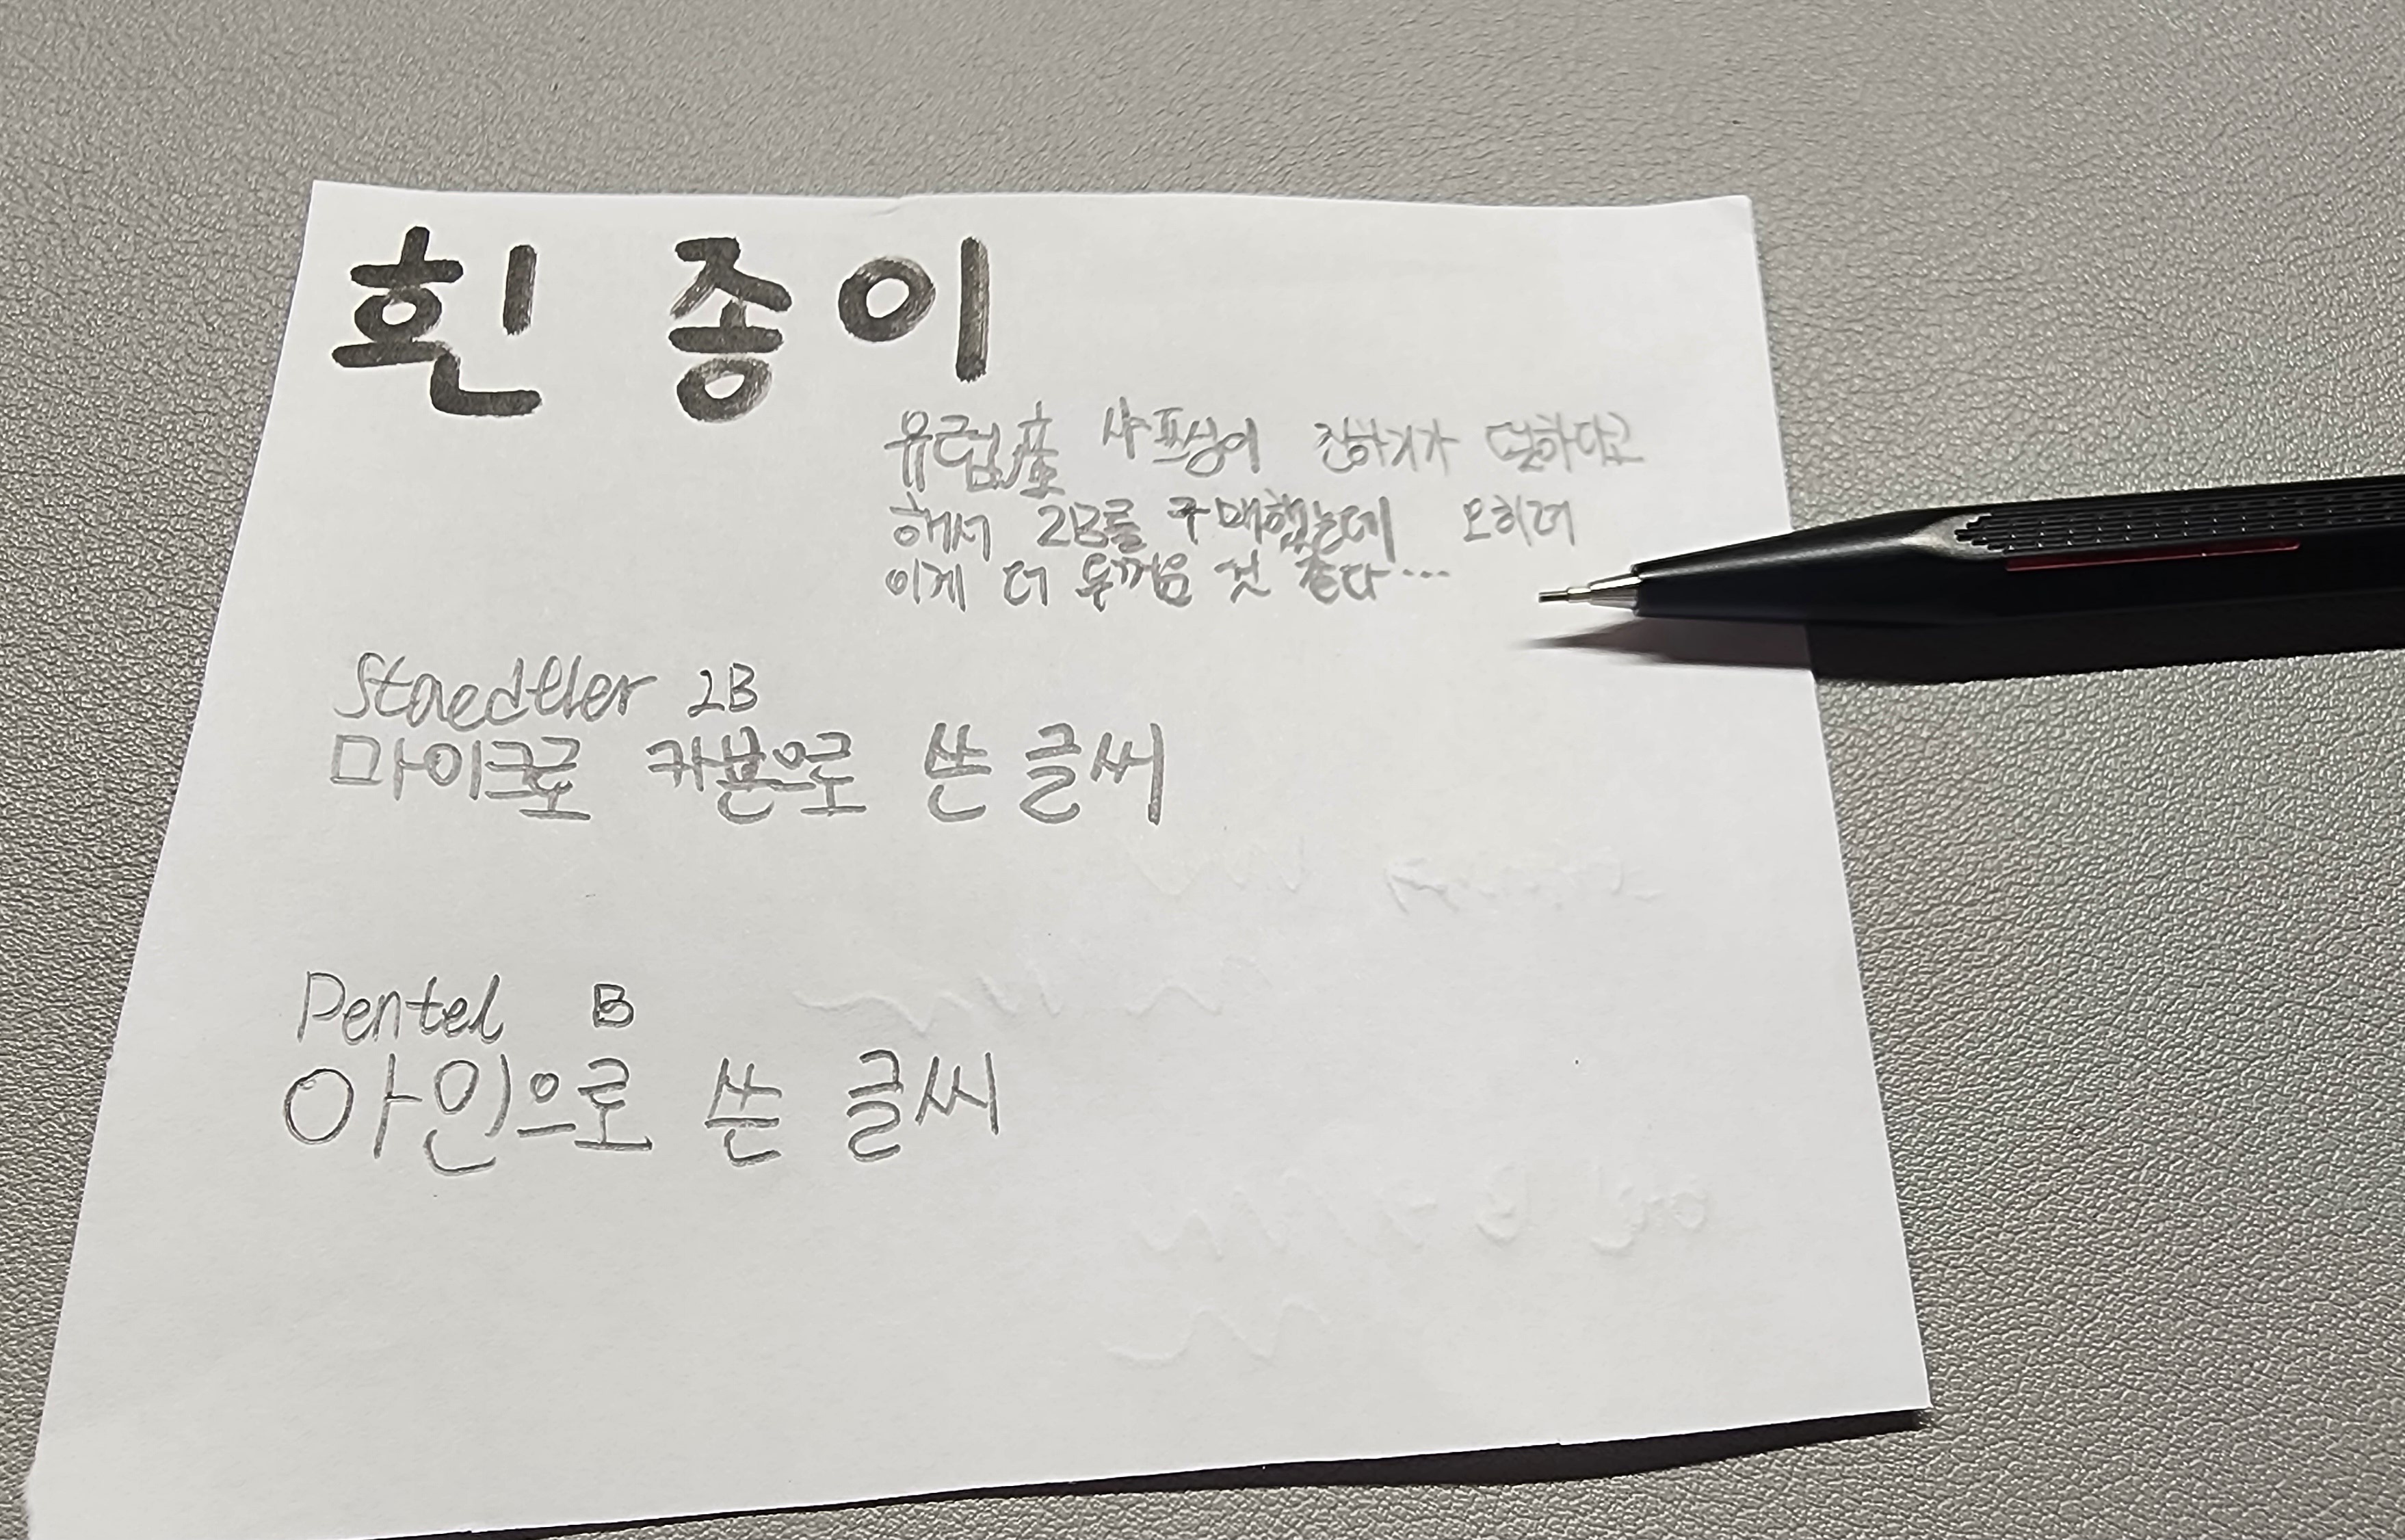 흰 종이
유럽産 샤프심이 진하기가 덜하다고
해서 2B를 구매했는데 오히려
이게 더 두꺼운 것 같다...
Staedtler 2B
마이크로 카본으로 쓴 글씨
Pentel B
아인으로 쓴 글씨